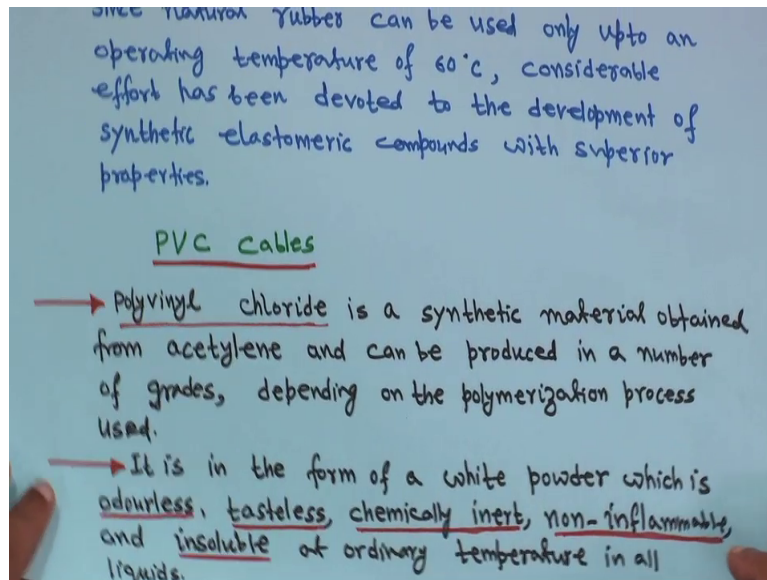 Since natural rubber can be used only upto an
operating temperature of 60°C, considerable
effort has been devoted to the development of
synthetic elastomeric compounds with superior
properties.
PVC Cables
Polyvinyl chloride is a synthetic material obtained
from acetylene and can be produced in a number
of grades, depending on the polymerization process
used.
It is in the form of a white powder which is
odourless, tasteless, chemically inert, non-inflammable,
and insoluble at ordinary temperature in all
liquids.